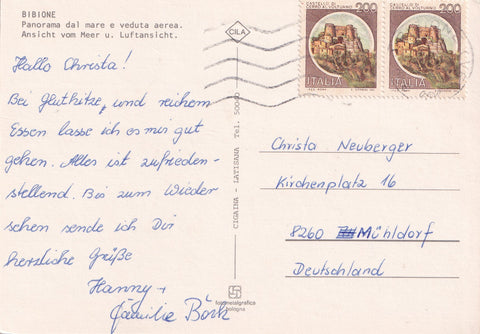 BIBIONE
Panorama dal mare e veduta aerea.
Ansicht vom Meer u. Luftansicht.
CILA
CASTELLO DI
CERRO AL VOLTURNO
200
ITALIA
CASTELLO DI
CERRO AL VOLTURNO
200
ITALIA
Hallo Christa!
Bei Gluthitze, und reichem
Essen lasse ich es mir gut
gehen. Alles ist zufrieden-
stellend. Bis zum Wieder
sehen sende ich Dir
herzliche Grüße
Hanny +
Familie
CIGAINA - LATISANA Tel. 50040
fotometalgrafica
bologna
Christa Neuberger
Kirchenplatz 16
8260 Mühldorf
Deutschland